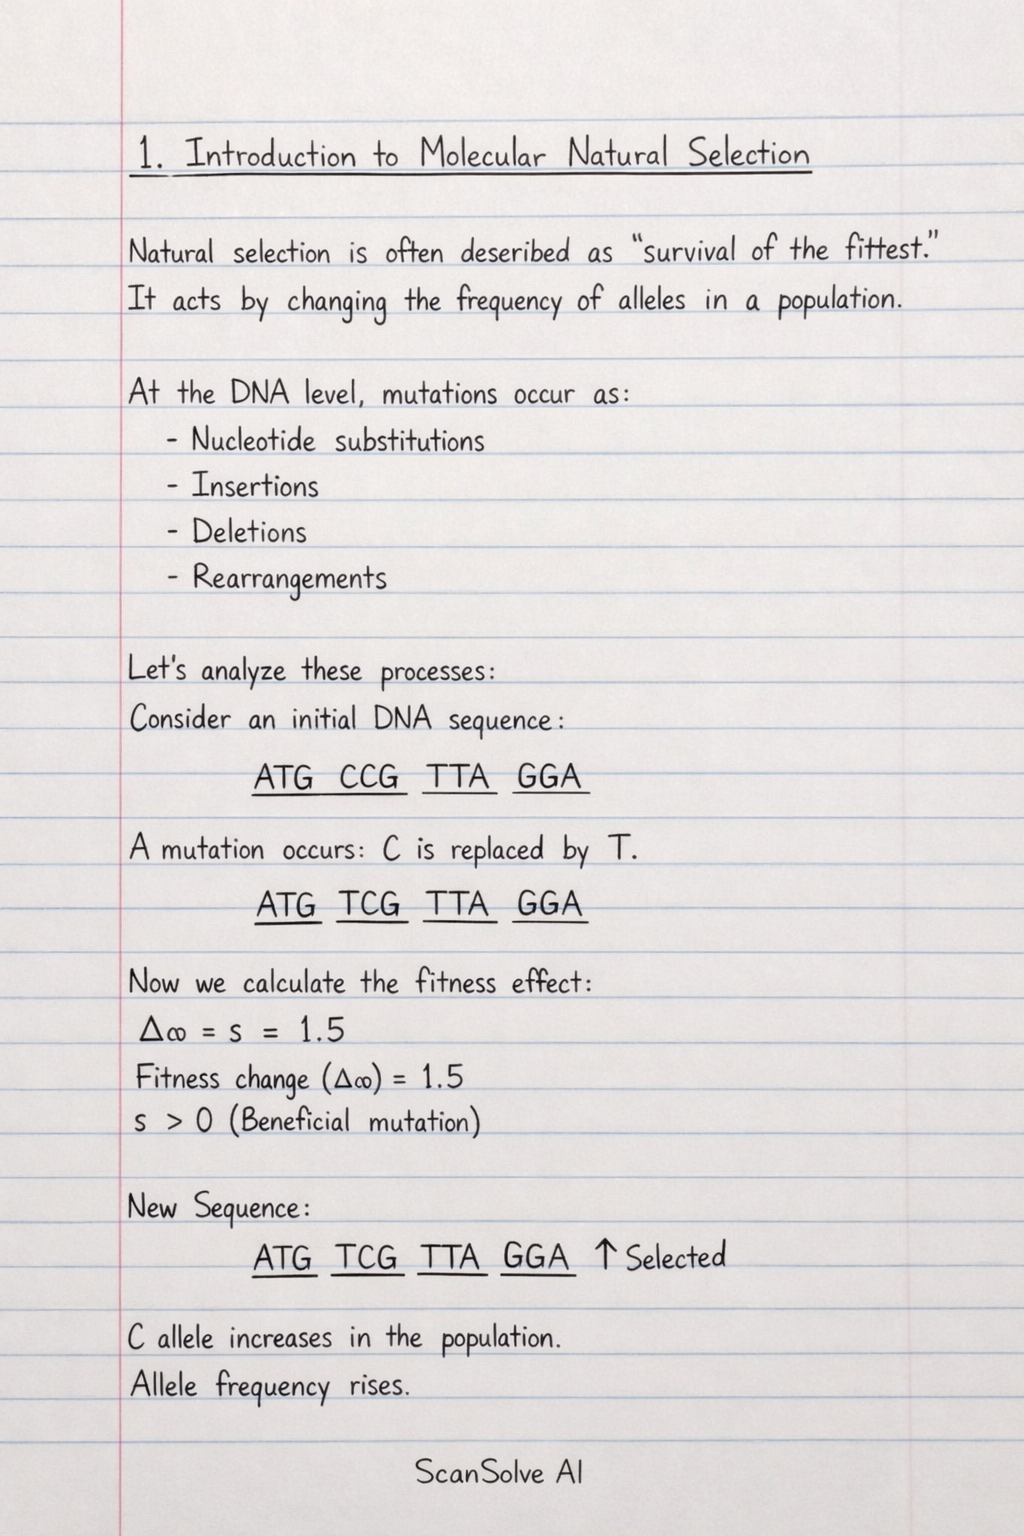 1. Introduction to Molecular Natural Selection
Natural selection is often deseribed as “survival of the fittest.”
It acts by changing the frequency of alleles in a population.
At the DNA level, mutations occur as:
- Nucleotide substitutions
- Insertions
- Deletions
- Rearrangements
Let's analyze these processes:
Consider an initial DNA sequence:
ATG CCG TTA GGA
A mutation occurs: C is replaced by T.
ATG TCG TTA GGA
Now we calculate the fitness effect:
Δ∞ = s = 1.5
Fitness change (Δ∞) = 1.5
s > 0 (Beneficial mutation)
New Sequence:
ATG TCG TTA GGA ↑ Selected
C allele increases in the population.
Allele frequency rises.
ScanSolve AI